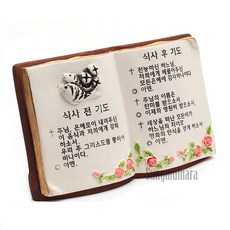 식사 전 기도
✝ 주님, 은혜로이 내려주신
이 음식과 저희에게 강복
하소서.
우리 주 그리스도를 통하여
비나이다.
○ 아멘.
식사 후 기도
✝ 전능하신 하느님,
저희에게 베풀어주신
모든은혜에 감사하나이다
○ 아멘.
✝ 주님의 이름은
찬미를 받으소서.
○ 이제와 영원히 받으소서.
✝ 세상을 떠난 모든이가
하느님의 자비로
평화의 안식을 얻게 하소서
○ 아멘.